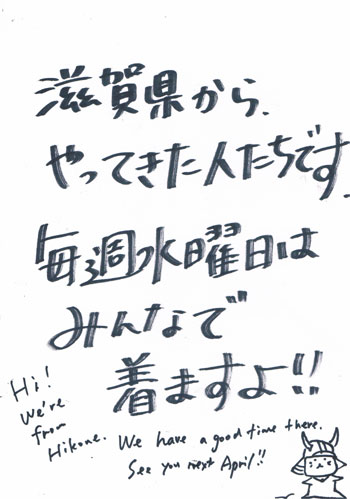 滋賀県から、
やってきた人たちです。
毎週水曜日は
みんなで
着ますよ!!
Hi!
We're
from
Hikone. We have a good time there.
See you next April!!